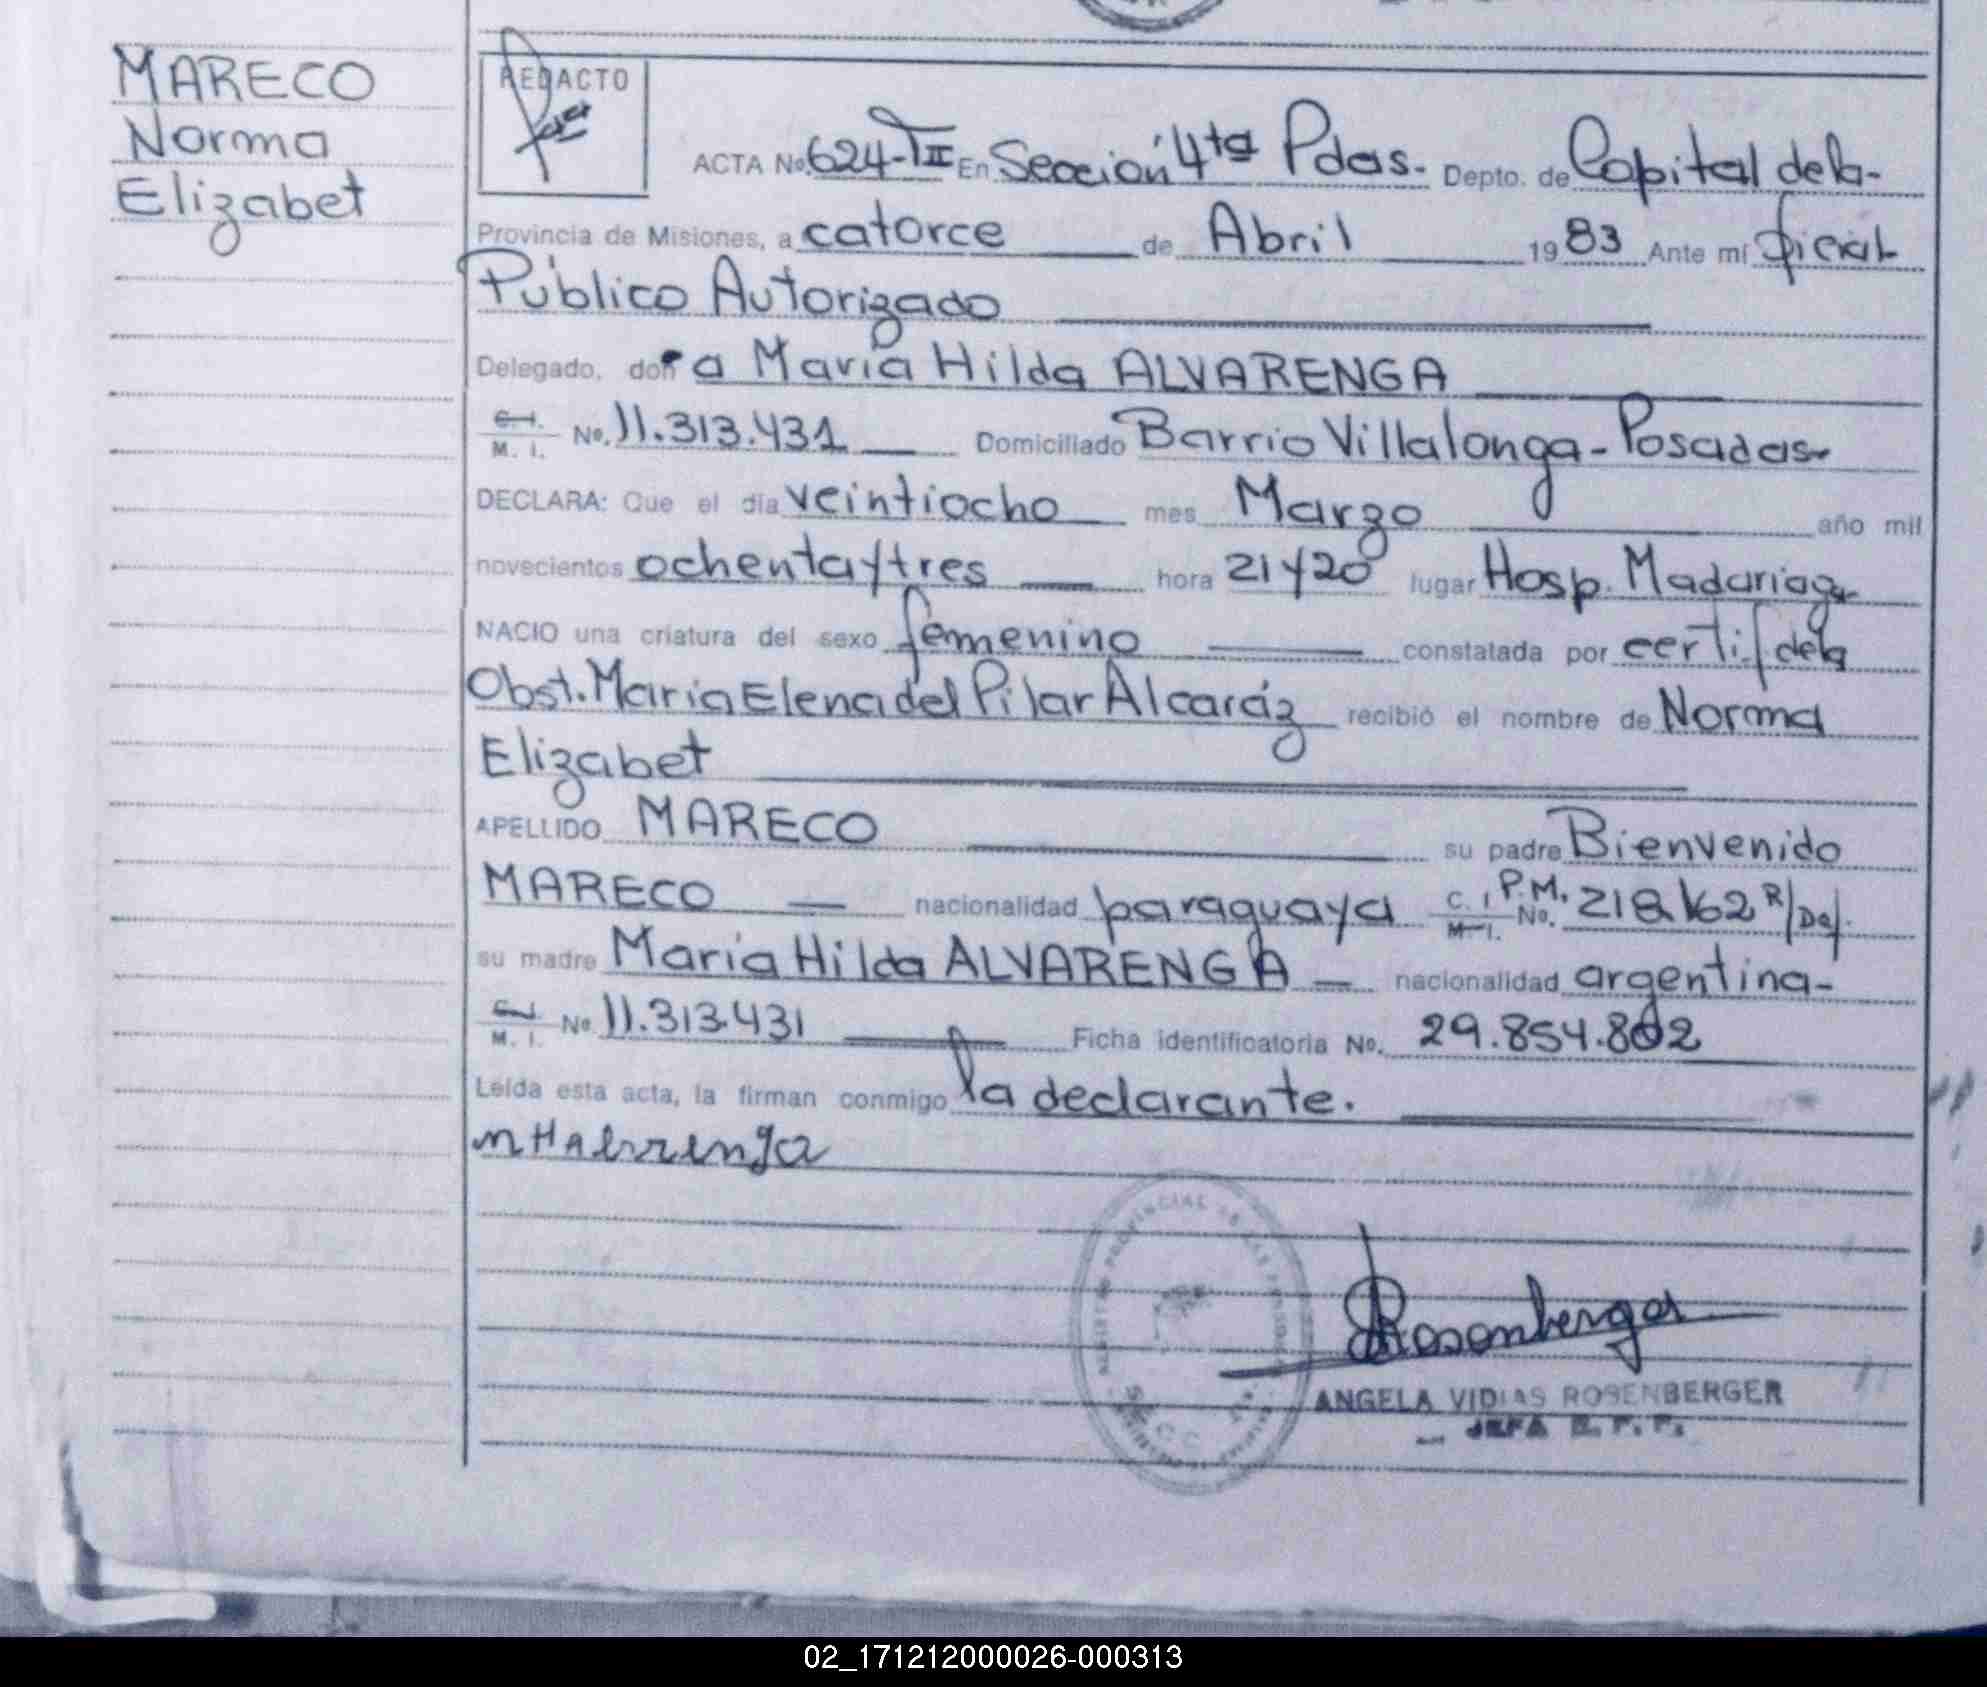 MARECO
Norma
Elizabet
REDACTO
ACTA No. 624-TII En Sección 4ta Pdas. Depto. de Capital de la-
Provincia de Misiones, a catorce de Abril 1983 Ante mí Oficial
Público Autorizado
Delegado, doña María Hilda ALVARENGA
C. I. M. I. No. 11.313.431 Domiciliado Barrio Villalonga-Posadas-
DECLARA: Que el día veintiocho mes Marzo año mil
novecientos ochenta y tres hora 21 y 20 lugar Hosp. Madariaga
NACIO una criatura del sexo femenino constatada por certif de la
Obst. María Elena del Pilar Alcaráz recibió el nombre de Norma
Elizabet
APELLIDO MARECO su padre Bienvenido
MARECO nacionalidad paraguaya C. I. P.M. M. I. No. 218.162 R/Def.
su madre María Hilda ALVARENGA nacionalidad argentina-
C. I. M. I. No 11.313.431 Ficha identificatoria No. 29.854.802
Leída esta acta, la firman conmigo la declarante.
MHAlvarenga
Rosenberger
ANGELA VIDIAS ROSENBERGER
JEFA
02_171212000026-000313